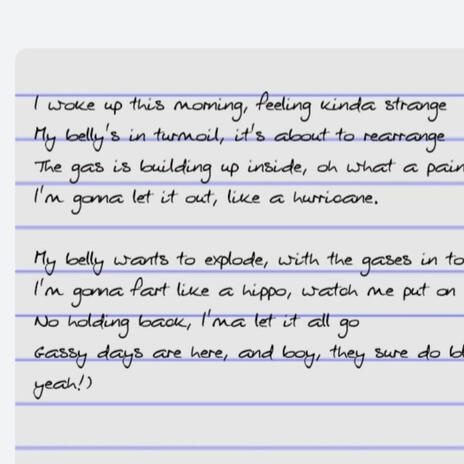 I woke up this morning, feeling kinda strange
My belly's in turmoil, it's about to rearrange
The gas is building up inside, oh what a pain
I'm gonna let it out, like a hurricane.
My belly wants to explode, with the gases in
I'm gonna fart like a hippo, watch me put on
No holding back, I'ma let it all go
Gassy days are here, and boy, they sure do
yeah!)